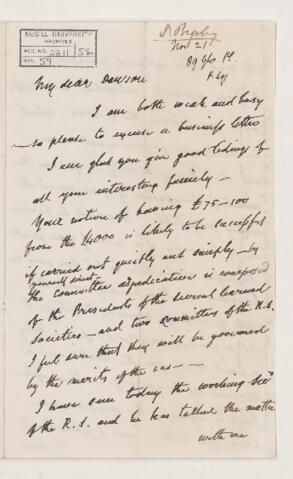 McGILL UNIVERSITY
ARCHIVES
ACC. NO. 2211 / 58
REF. 59
Nov 21
89
My dear Dawson
I am both weak and busy
— so please to excuse a business letter
I am glad you give good tidings of
all your interesting family —
Your notion of having £75–100
from the £4000 is likely to be successful
if carried out quietly and simply — by
yourself direct
the Committee of adjudication is composed
of the Presidents of the several learned
Societies — and two committees of the R.S.
I feel sure that they will be governed
by the merits of the case —
I have seen today the working Secy
of the R.S. and he has talked the matter
with me